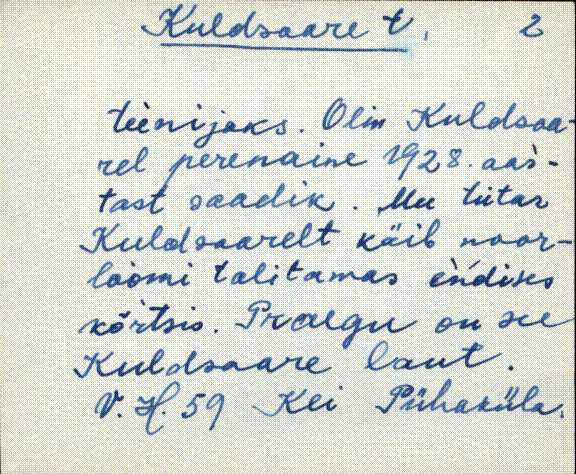 Kuldsaare t. 2
teenijaks. Olin Kuldsaa-
rel perenaine 1928. aas-
tast saadik. Mu tütar
Kuldsaarelt käib noor-
loomi talitamas endises
kõrtsis. Praegu on see
Kuldsaare laut.
V. H. 59 Kei Pühaküla.